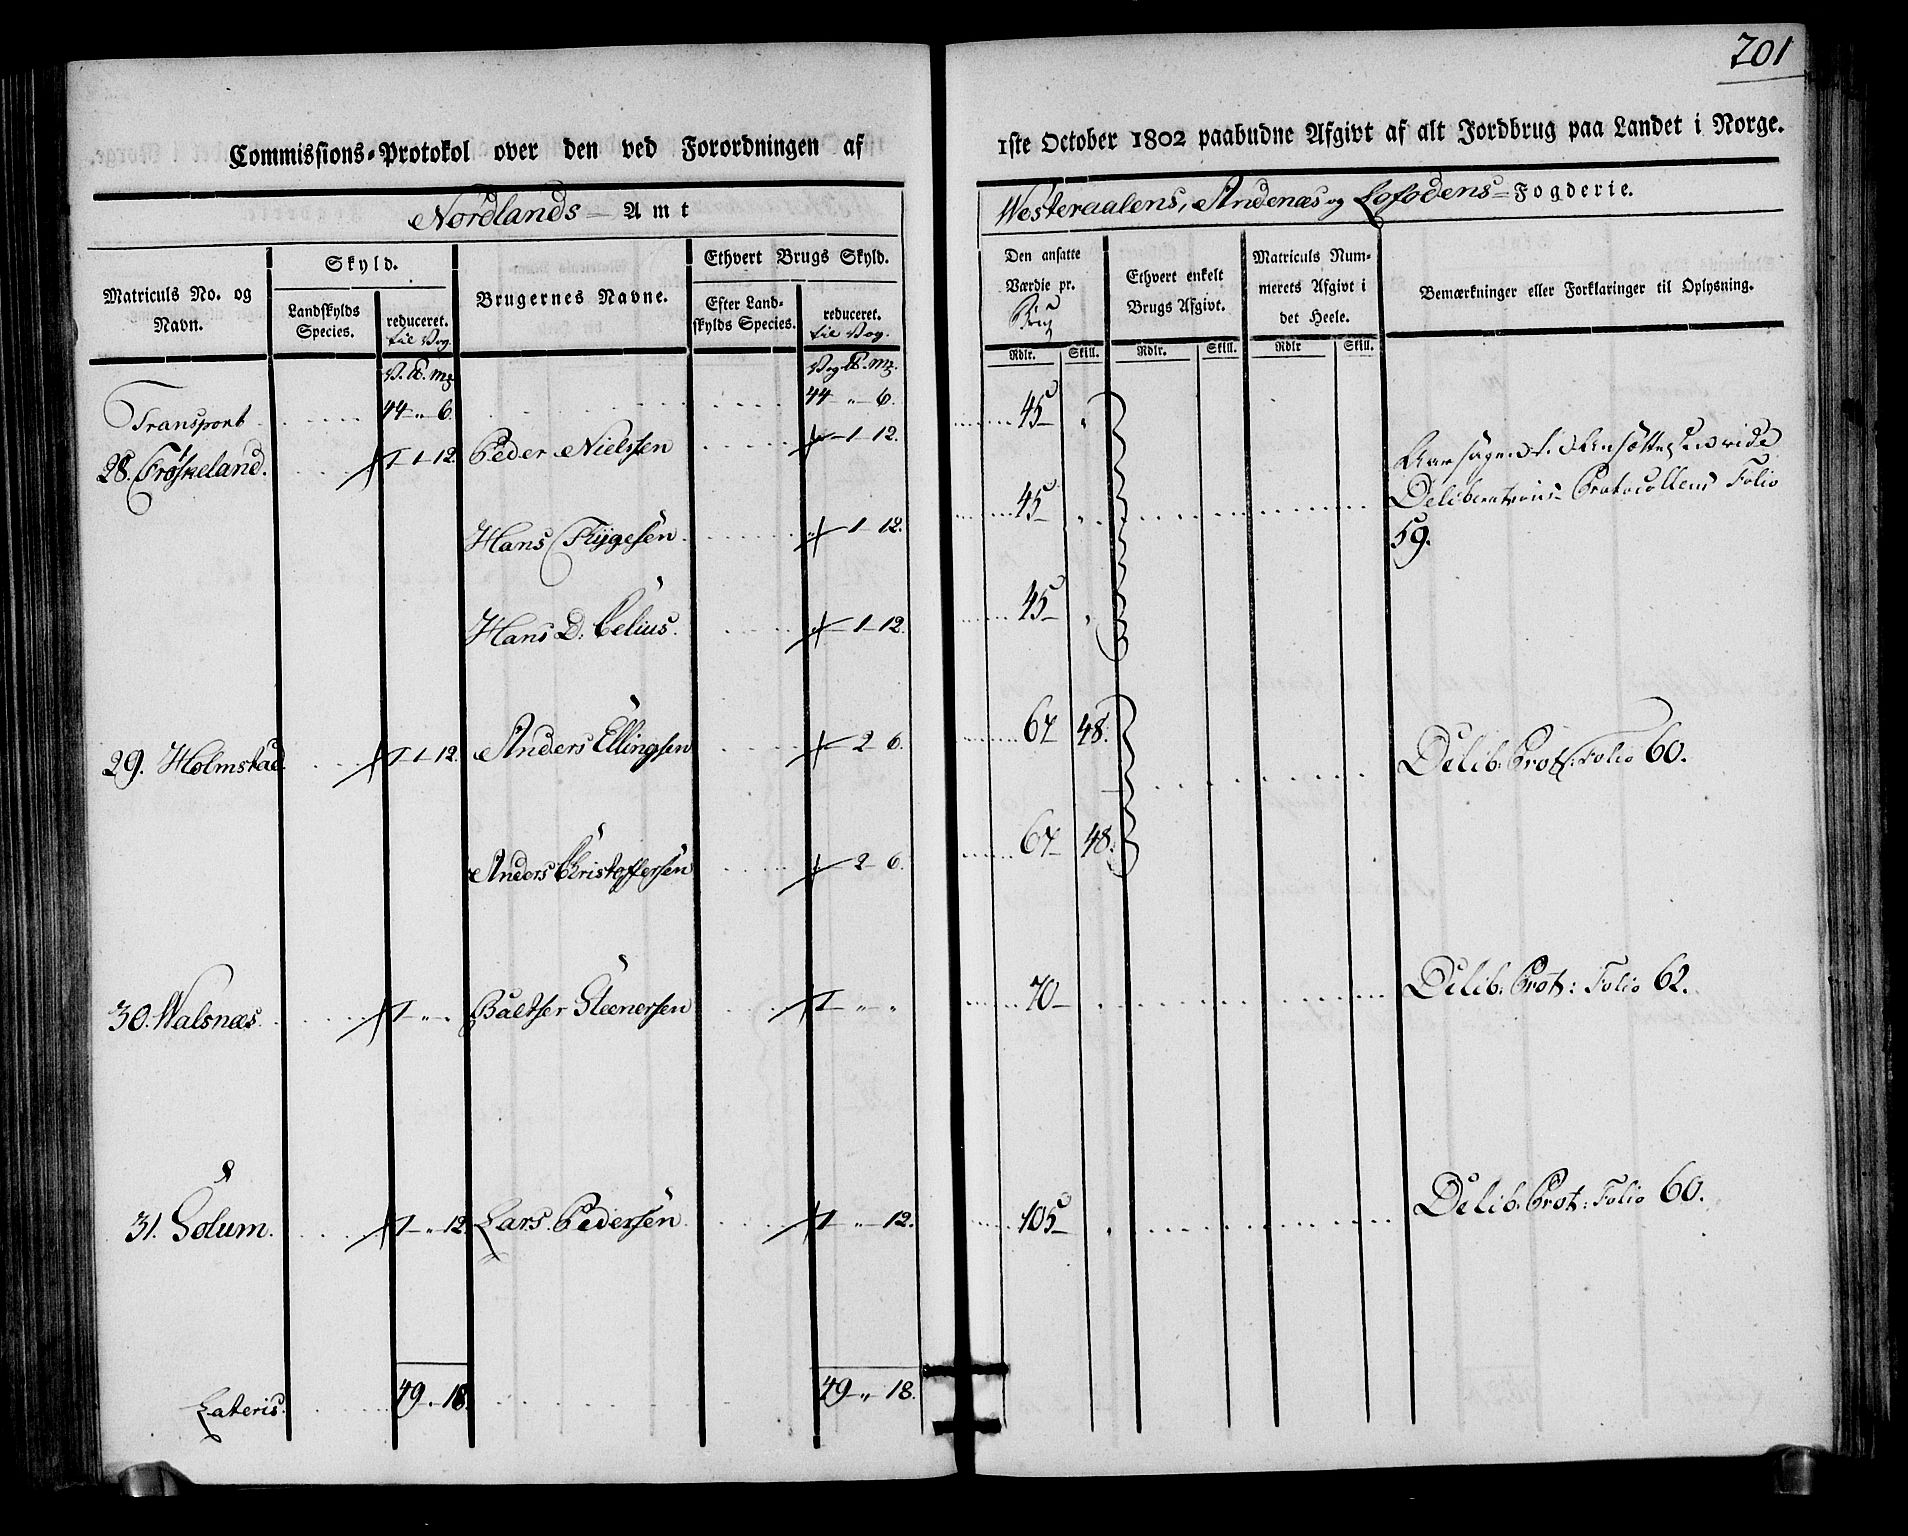 201
Commissions-Protokol over den ved Forordningen af 1ste October 1802 paabudne Afgivt af alt Jordbrug paa Landet i Norge.
Nordlands Amt Westeraalens, Andenæs og Lofodens Fogderie.
Matriculs No. og Navn.
Skyld.
Landskylds Species.
reduceret. til Vog
Brugernes Navne.
Ethvert Brugs Skyld.
Efter Landskylds Species.
reduceret. til Vog.
Den ansatte Værdie pr. Brug
Ethvert enkelt Brugs Afgivt.
Matriculs Nummerets Afgivt i det Heele.
Bemærkninger eller Forklaringer til Oplysning.
Rdlr. Skill. Rdlr. Skill. Rdlr Skill.
V. ℔. mg. Vog ℔. mg.
Transport 44 " 6. 44 " 6.
28. Frøskeland. 1 - 1 - 12. Peder Nielssen " - 1 - 12. 45 - "
Aarsagen til Ansættelsen vide
Deliberations Protocollens Folio
59.
Hans Tygesen " - 1 - 12. 45 - "
Hans D: Celius. " - 1 - 12. 45 - "
29. Holmstad 1 - 1 - 12. Anders Ellingsen " - 2 - 6. 67 48. Delib: Prot: Folio 60.
Anders Christoffersen " - 2 - 6. 67 - 48.
30. Walsnæs. 1 - " - " Baltser Steenersen 1 - " - " 70 - " Delib: Prot: Folio 62.
31. Solum. 1 - " - 12. Lars Pedersen 1 - " - 12. 105 - " Delib: Prot: Folio 60.
Lateris. 49 - " 18. 49 - " 18.